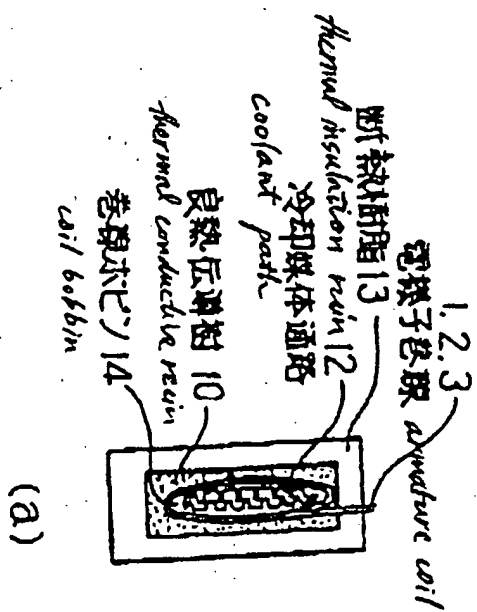 1.2.3
電機子巻線 armature coil
断熱樹脂13
thermal insulation resin
冷却媒体通路12
coolant path
良熱伝導樹 10
thermal conductive resin
巻線ボビン14
coil bobbin
(a)